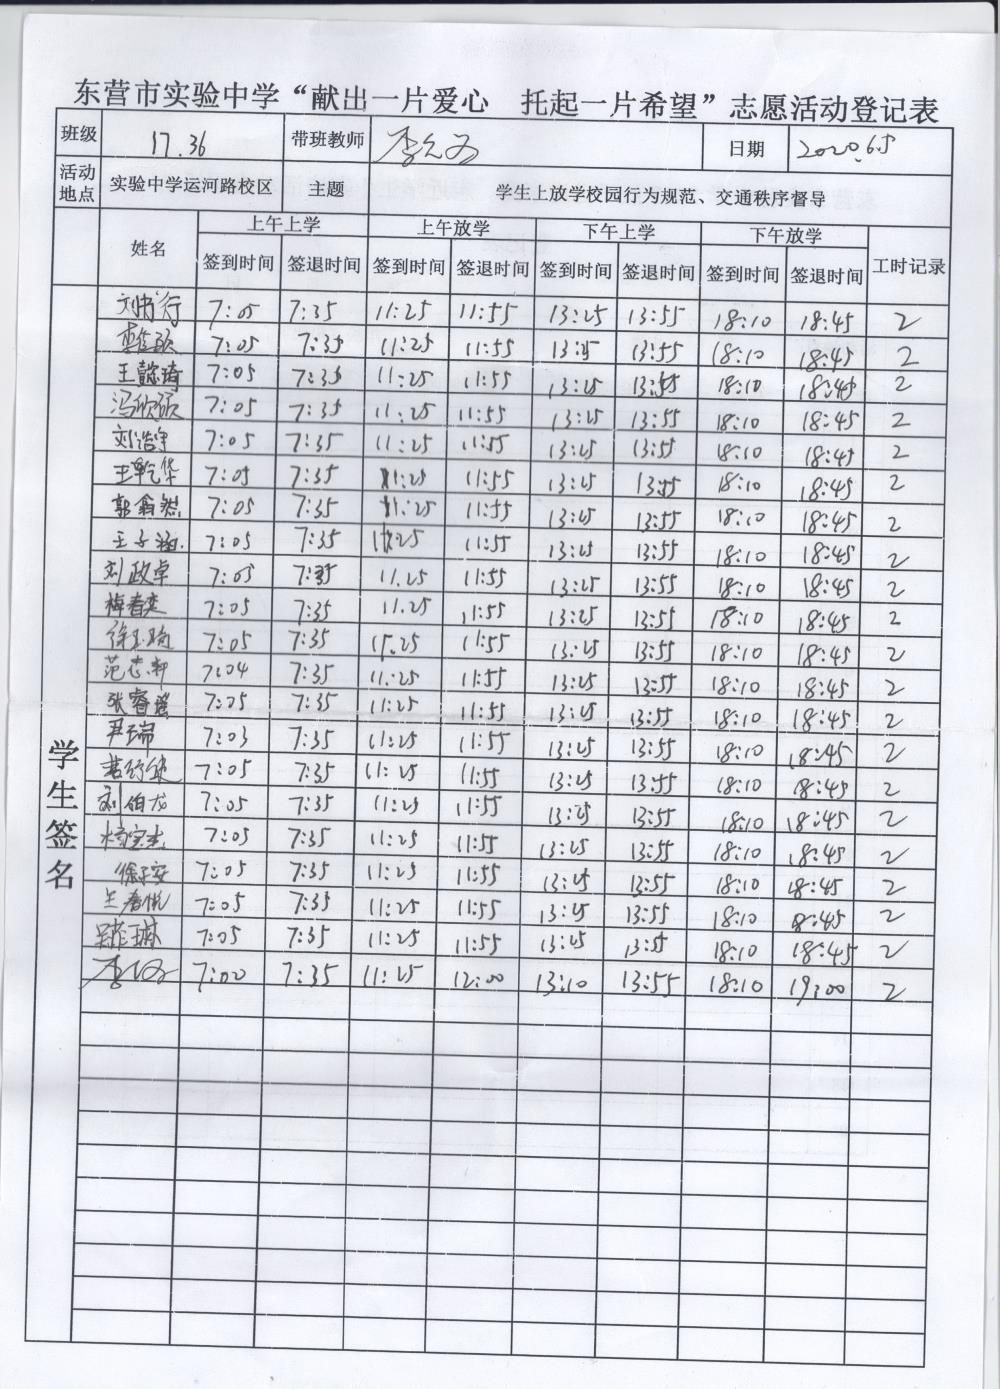 东营市实验中学“献出一片爱心 托起一片希望”志愿活动登记表
班级 17.36 带班教师 日期 2020.6.5
活动地点 实验中学运河路校区 主题 学生上放学校园行为规范、交通秩序督导
姓名 上午上学 上午放学 下午上学 下午放学 工时记录
签到时间 签退时间 签到时间 签退时间 签到时间 签退时间 签到时间 签退时间
学生签名
刘书行 7:05 7:35 11:25 11:55 13:25 13:55 18:10 18:45 2
7:05 7:35 11:25 11:55 13:25 13:55 18:10 18:45 2
王懿琦 7:05 7:35 11:25 11:55 13:25 13:55 18:10 18:45 2
冯欣硕 7:05 7:35 11:25 11:55 13:25 13:55 18:10 18:45 2
刘浩宇 7:05 7:35 11:25 11:55 13:25 13:55 18:10 18:45 2
王乾华 7:05 7:35 11:25 11:55 13:25 13:55 18:10 18:45 2
7:05 7:35 11:25 11:55 13:25 13:55 18:10 18:45 2
王子涵 7:05 7:35 11:25 11:55 13:25 13:55 18:10 18:45 2
刘政卓 7:05 7:35 11.25 11:55 13:25 13:55 18:10 18:45 2
梅春奕 7:05 7:35 11.25 11:55 13:25 13:55 18:10 18:45 2
7:05 7:35 11.25 11:55 13:25 13:55 18:10 18:45 2
7:04 7:35 11:25 11:55 13:25 13:55 18:10 18:45 2
张睿瑶 7:05 7:35 11:25 11:55 13:25 13:55 18:10 18:45 2
尹瑞 7:03 7:35 11:25 11:55 13:25 13:55 18:10 18:45 2
7:05 7:35 11:25 11:55 13:25 13:55 18:10 18:45 2
刘伯龙 7:05 7:35 11:25 11:55 13:25 13:55 18:10 18:45 2
杨宝杰 7:05 7:35 11:25 11:55 13:25 13:55 18:10 18:45 2
徐子安 7:05 7:35 11:25 11:55 13:25 13:55 18:10 18:45 2
7:05 7:35 11:25 11:55 13:25 13:55 18:10 18:45 2
7:05 7:35 11:25 11:55 13:25 13:55 18:10 18:45 2
7:00 7:35 11:25 12:00 13:10 13:55 18:10 19:00 2